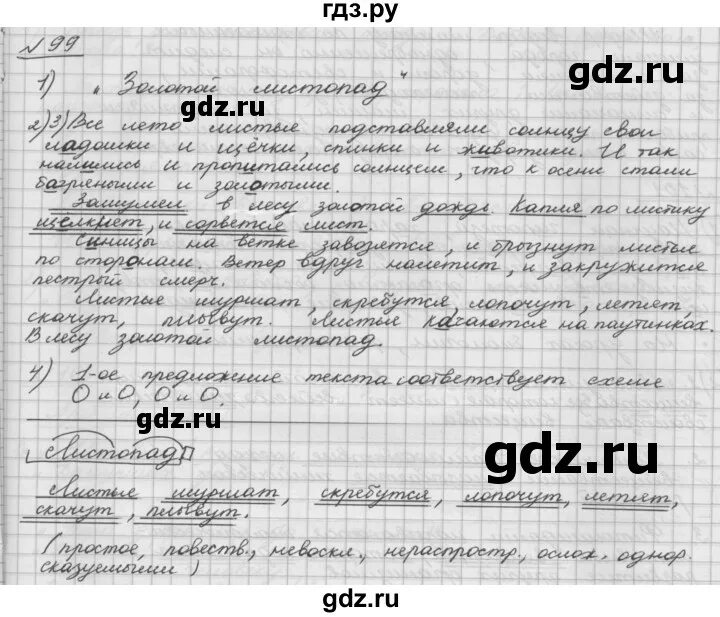 гдз.ру
№ 99
1) „Золотой листопад"
gdz.ru
gdz.ru
2)3) Все лето листья подставляли солнцу свои
ладошки и щёчки, спинки и животики. И так
налились и пропитались солнцем, что к осени стали
багряными и золотыми.
Зашумел в лесу золотой дождь. Капля по листику
щёлкнет, и сорвется лист.
Синицы на ветке завозятся, и брызнут листья
по сторонам. Ветер вдруг налетит, и закружится
пестрый смерч.
Листья шуршат, скребутся, лопочут, летят,
скачут, плывут. Листья качаются на паутинках.
В лесу золотой листопад.
4) 1-ое предложение текста соответствует схеме
О и О, О и О.
gdz.ru
gdz.ru
Листопад
Листья шуршат, скребутся, лопочут, летят,
скачут, плывут.
gdz.ru
gdz.ru
(простое, повеств., невоскл., нераспростр., ослож. однор.
сказуемыми)
gdz.ru